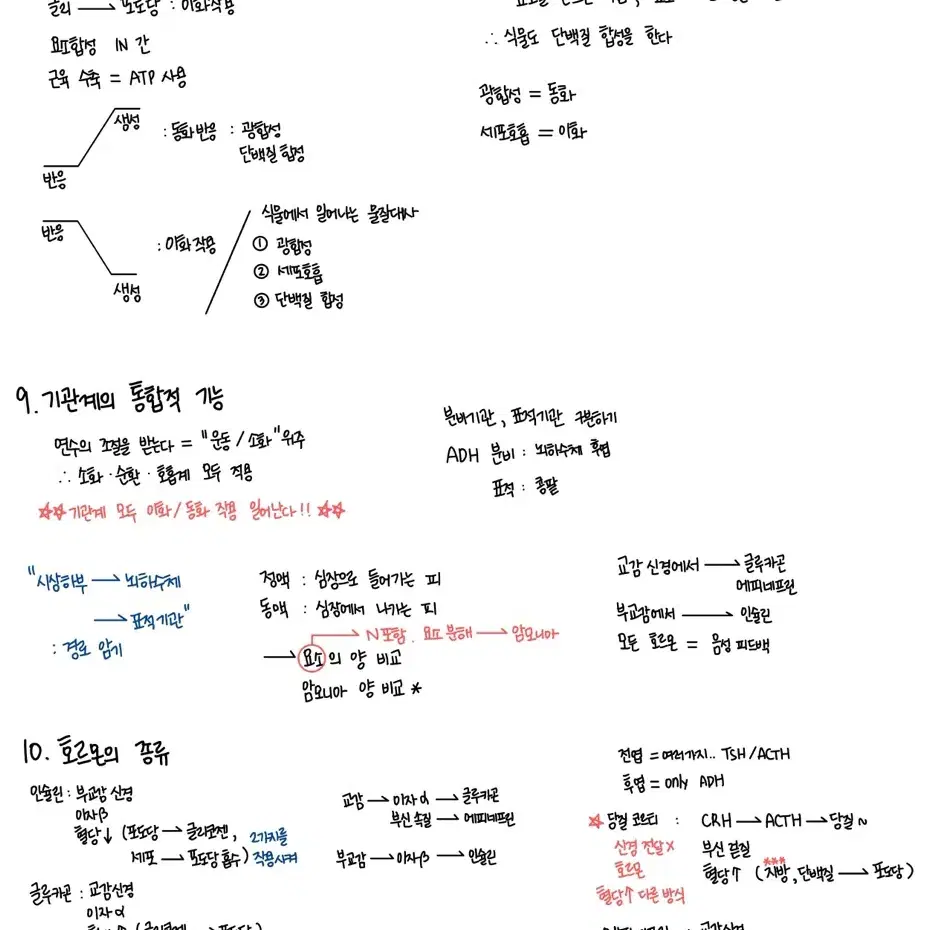 글리 → 포도당 : 이화작용
요소합성 IN 간
근육 수축 = ATP 사용
생성
: 동화반응 : 광합성
단백질 합성
반응
반응
: 이화작용
생성
식물에서 일어나는 물질대사
① 광합성
② 세포호흡
③ 단백질 합성
∴ 식물도 단백질 합성을 한다
광합성 = 동화
세포호흡 = 이화
9. 기관계의 통합적 기능
연수의 조절을 받는다 = "운동 / 소화" 위주
∴ 소화 · 순환 · 호흡계 모두 적용
☆☆ 기관계 모두 이화 / 동화 작용 일어난다!! ☆☆
분비기관, 표적기관 구분하기
ADH 분비 : 뇌하수체 후엽
표적 : 콩팥
"시상하부 → 뇌하수체
→ 표적기관"
: 경로 암기
정맥 : 심장으로 들어가는 피
동맥 : 심장에서 나가는 피
→ N포함. 요소 분해 → 암모니아
→ 요소의 양 비교
암모니아 양 비교 *
교감 신경에서 → 글루카곤
에피네프린
부교감에서 → 인슐린
모든 호르몬 = 음성 피드백
10. 호르몬의 종류
인슐린 : 부교감 신경
이자β
혈당↓ (포도당 → 글리코젠,
세포 → 포도당 흡수)
2가지를
작용시켜
글루카곤 : 교감신경
이자α
교감 → 이자α → 글루카곤
부신 속질 → 에피네프린
부교감 → 이자β → 인슐린
전엽 = 여러가지.. TSH / ACTH
후엽 = only ADH
☆ 당질 코르티 : CRH → ACTH → 당질~
신경 전달 X
호르몬
혈당↑ 다른 방식
부신 겉질
***
혈당↑ (지방, 단백질 → 포도당)